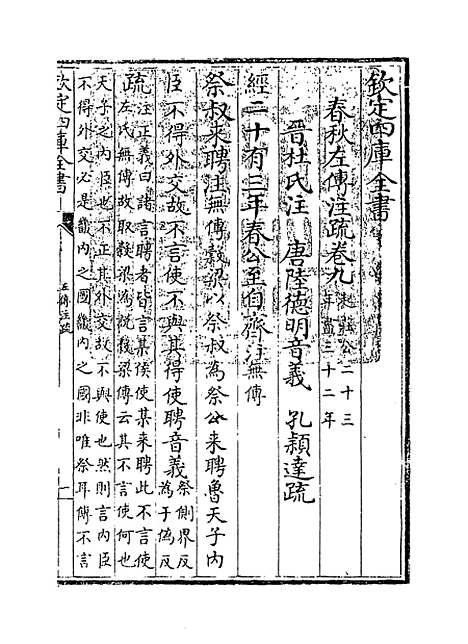 欽定四庫全書
春秋左傳注疏卷九起莊公二十三年盡三十二年
晉杜氏注 唐陸德明音義 孔穎達疏
經二十有三年春公至自齊注無傳
祭叔來聘注無傳穀梁以祭叔為祭公來聘魯天子内
臣不得外交故不言使不與其得使聘音義祭側界反為于偽反
疏注正義曰諸言聘者皆言某侯使某來聘此不言使左氏無傳故取穀梁為說穀梁傳云其不言使何也
天子之内臣也不正其外交故不與使也然則言内臣不得外交必是畿内之國畿内之國非唯祭耳傳不言
欽定四庫全書
左傳注疏
一